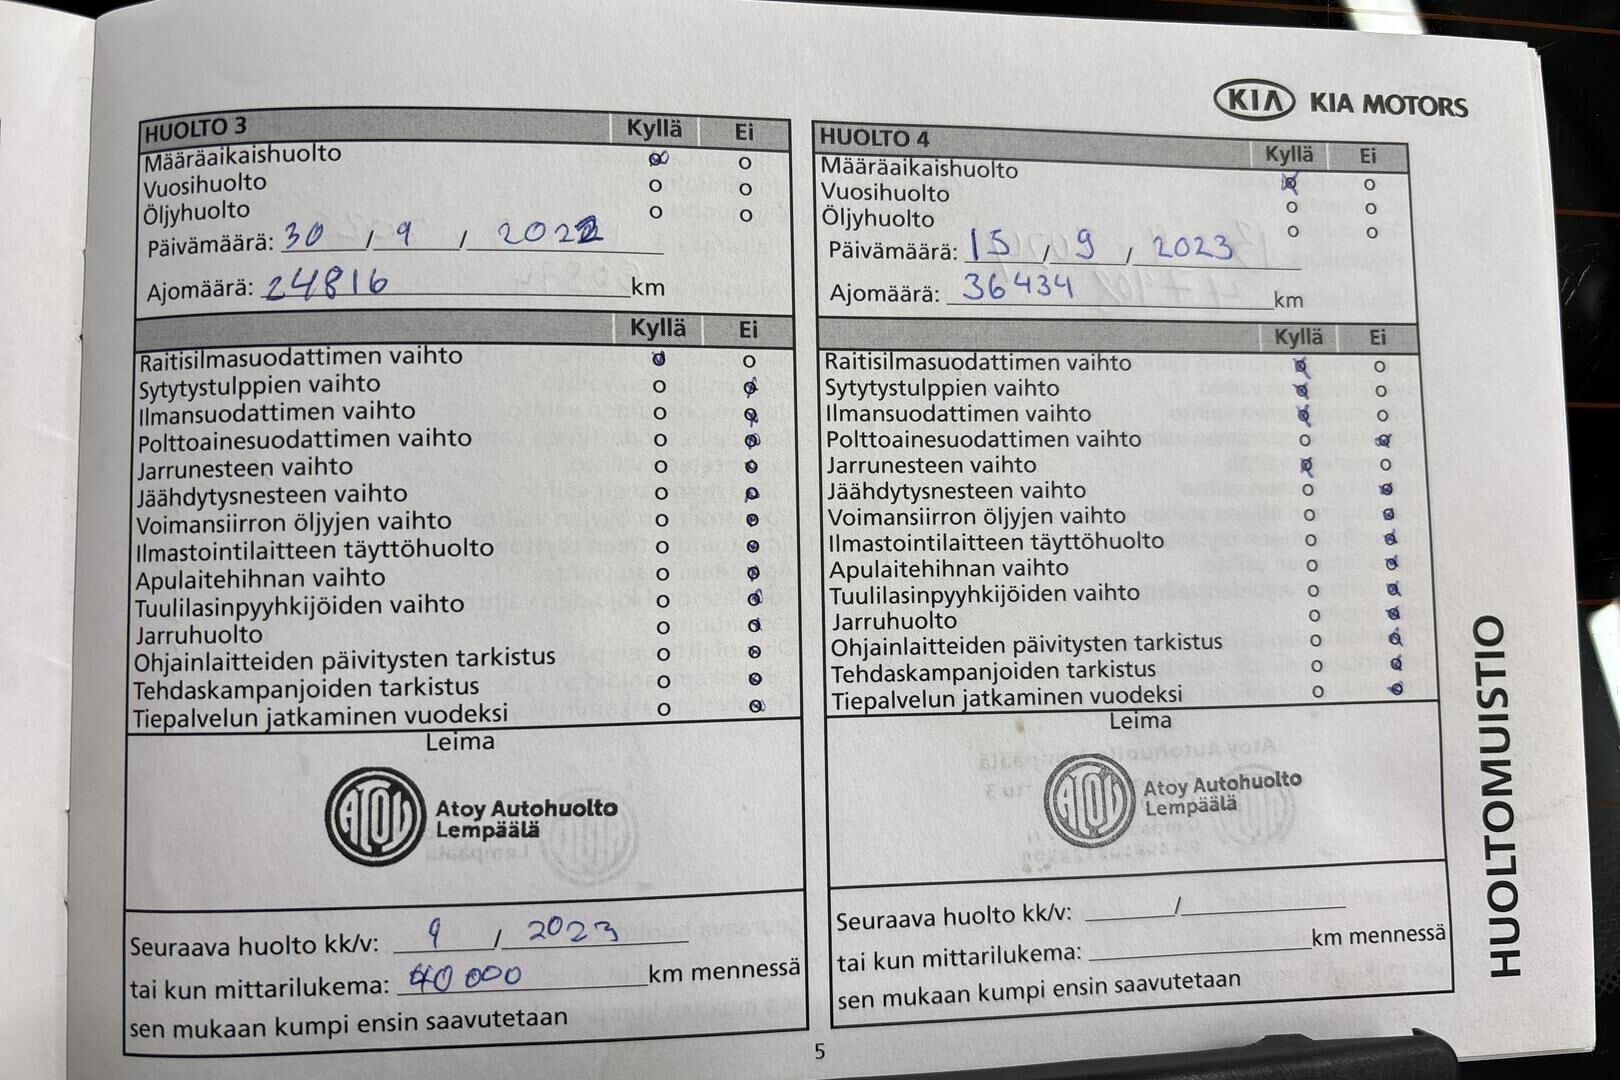 KIA KIA MOTORS
HUOLTO 3 Kyllä Ei
Määräaikaishuolto
Vuosihuolto
Öljyhuolto
Päivämäärä: 30 / 9 / 2022
Ajomäärä: 24816 km
Kyllä Ei
Raitisilmasuodattimen vaihto
Sytytystulppien vaihto
Ilmansuodattimen vaihto
Polttoainesuodattimen vaihto
Jarrunesteen vaihto
Jäähdytysnesteen vaihto
Voimansiirron öljyjen vaihto
Ilmastointilaitteen täyttöhuolto
Apulaitehihnan vaihto
Tuulilasinpyyhkijöiden vaihto
Jarruhuolto
Ohjainlaitteiden päivitysten tarkistus
Tehdaskampanjoiden tarkistus
Tiepalvelun jatkaminen vuodeksi
Leima
ATOY Atoy Autohuolto
Lempäälä
Seuraava huolto kk/v: 9 / 2023
tai kun mittarilukema: 40 000 km mennessä
sen mukaan kumpi ensin saavutetaan
HUOLTO 4 Kyllä Ei
Määräaikaishuolto
Vuosihuolto
Öljyhuolto
Päivämäärä: 15 / 9 / 2023
Ajomäärä: 36434 km
Kyllä Ei
Raitisilmasuodattimen vaihto
Sytytystulppien vaihto
Ilmansuodattimen vaihto
Polttoainesuodattimen vaihto
Jarrunesteen vaihto
Jäähdytysnesteen vaihto
Voimansiirron öljyjen vaihto
Ilmastointilaitteen täyttöhuolto
Apulaitehihnan vaihto
Tuulilasinpyyhkijöiden vaihto
Jarruhuolto
Ohjainlaitteiden päivitysten tarkistus
Tehdaskampanjoiden tarkistus
Tiepalvelun jatkaminen vuodeksi
Leima
ATOY Atoy Autohuolto
Lempäälä
Seuraava huolto kk/v: /
tai kun mittarilukema: km mennessä
sen mukaan kumpi ensin saavutetaan
HUOLTOMUISTIO
5